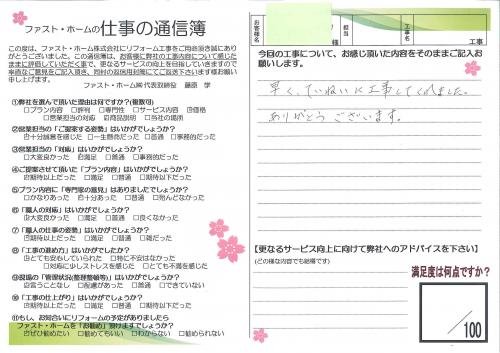 ファスト・ホームの仕事の通信簿
この度は、ファスト・ホーム株式会社にリフォーム工事をご用命頂き誠にあり
がとうございました。この通信簿は、お客様に弊社の工事内容について感じた
ままに評価していただく事で、更なるサービスの向上を目指していきますので
率直なご意見をご記入頂き、同封の返信用封筒にてご送下さいます様お願い
申し上げます。
ファスト・ホーム㈱代表取締役 藤原 学
①弊社を選んで頂いた理由は何ですか？(複数可)
□プラン内容 □評判 □専門性 □サービス内容 ☑価格
□実績 ☑商品説明 □当社の場所
②営業担当の「ご提案する姿勢」はいかがでしょうか？
☑十分誠意を感じた □一生懸命だった □普通 □事務的だった
③営業担当の「対応」はいかがでしょうか？
□大変良かった ☑満足 □普通 □事務的だった
④ご提案させて頂いた「プラン内容」はいかがでしょうか？
□期待以上だった ☑満足 □普通 □期待以下だった
⑤プラン内容に「専門家の意見」はありましたでしょうか？
□かなりあった ☑十分あった □普通 □殆んどなかった
⑥「職人の対応」はいかがでしょうか？
☑大変良かった □満足 □普通 □良くなかった
⑦「職人の仕事の姿勢」はいかがでしょうか？
☑期待以上だった □満足 □普通 □雑だった
⑧「工事の進め方」はいかがでしたか？
☑とても安心していられた □特に不安はなかった
□対応に少しストレスを感じた □とても不満を感じた
⑨現場の「管理状況(整理整頓等)」はいかがでしょうか？
☑言うことなし □配慮があった □普通 □できていない
⑩「工事の仕上がり」はいかがでしょうか？
☑期待以上だった □満足 □普通 □期待以下だった
⑪もし、お知合いにリフォームの予定がありましたら
ファスト・ホームを「お勧め」頂けますでしょうか？
☑ぜひ勧めたい □勧めてもいい □わからない □勧められない
お客様名
担当
工事名
工事
今回の工事について、お感じ頂いた内容をそのままご記入お
願いします。
早く、ていねいに工事してくれました。
ありがとうございます。
【更なるサービス向上に向けて弊社へのアドバイスを下さい】
(どの様な内容でも結構です)
満足度は何点ですか？
/100